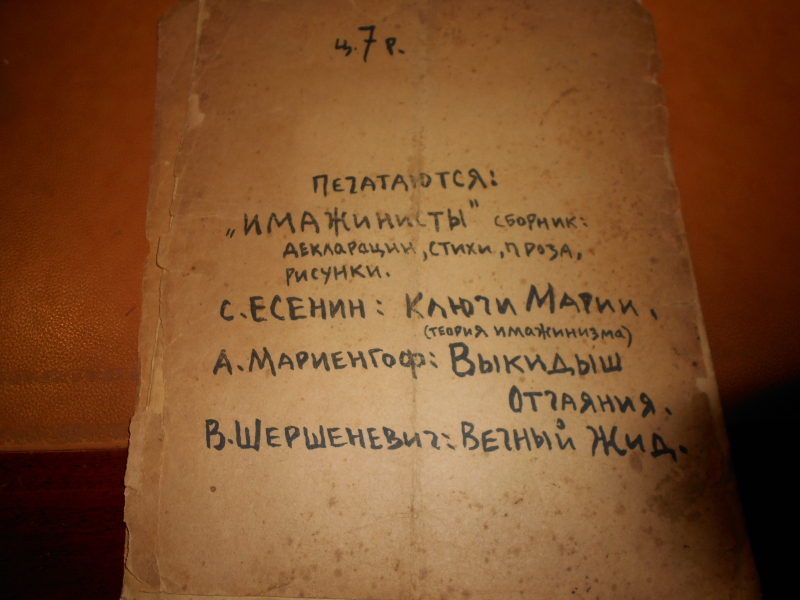 ц. 7 р.
ПЕЧАТАЮТСЯ:
„ИМАЖИНИСТЫ" СБОРНИК:
ДЕКЛАРАЦИИ, СТИХИ, ПРОЗА,
РИСУНКИ.
С. ЕСЕНИН: КЛЮЧИ МАРИИ.
(ТЕОРИЯ ИМАЖИНИЗМА)
А. МАРИЕНГОФ: ВЫКИДЫШ
ОТЧАЯНИЯ.
В. ШЕРШЕНЕВИЧ: ВЕЧНЫЙ ЖИД.